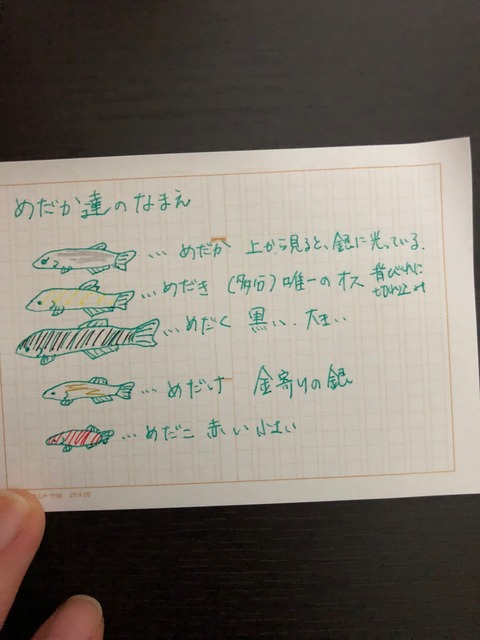 めだか達のなまえ
…めだか 上から見ると、銀に光っている.
…めだき (多分)唯一のオス 背びれに
切れ込み
…めだく 黒い. 大きい
…めだけ 金寄りの銀
…めだこ 赤い 小さい
20×20